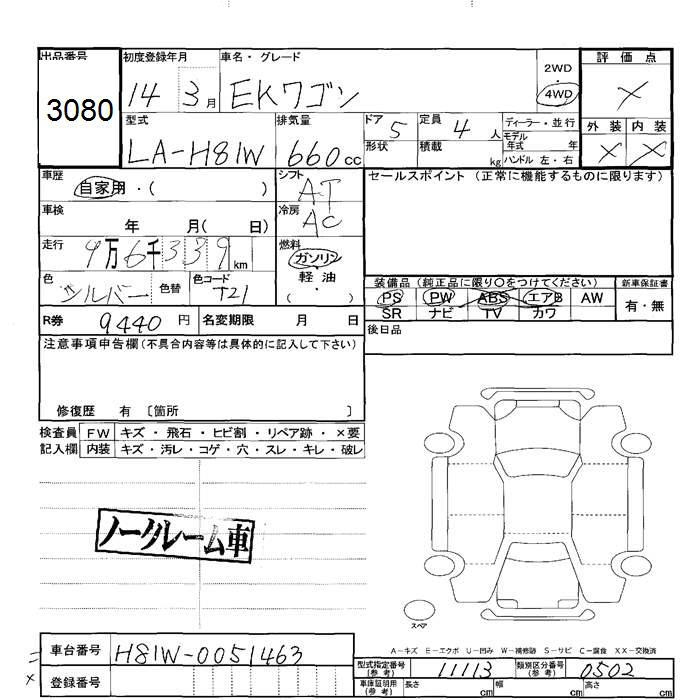 出品番号 初度登録年月 車名・グレード 2WD 評価点
3080 14 3月 EKワゴン 4WD ×
型式 排気量 ドア 5 定員 4人 ディーラー・並行 外装 内装
LA-H81W 660cc 形状 積載 kg モデル年式 年 × ×
ハンドル 左・右
車歴 自家用・( ) シフト AT セールスポイント (正常に機能するものに限ります)
車検 年 月( 日) 冷房 AC
走行 9万6千339km 燃料 ガソリン
軽油
色 シルバー 色替 色コード T21 ( ) 装備品 (純正品に限り○をつけてください) 新車保証書
PS PW ABS エアB AW 有・無
SR ナビ TV カワ
R券 9440円 名変期限 月 日 後日品
注意事項申告欄(不具合内容等は具体的に記入して下さい)
修復歴 有 〔箇所 〕
検査員 FW キズ・飛石・ヒビ割・リペア跡・×要
記入欄 内装 キズ・汚レ・コゲ・穴・スレ・キレ・破レ
ノークレーム車
スペア
A-キズ E-エクボ U-凹み W-補修跡 S-サビ C-腐食 XX-交換済
車台番号 H81W-0051463
型式指定番号(参考) 11113 類別区分番号(参考) 0502
登録番号
車庫証明用(参考) 長さ cm 幅 cm 高さ cm